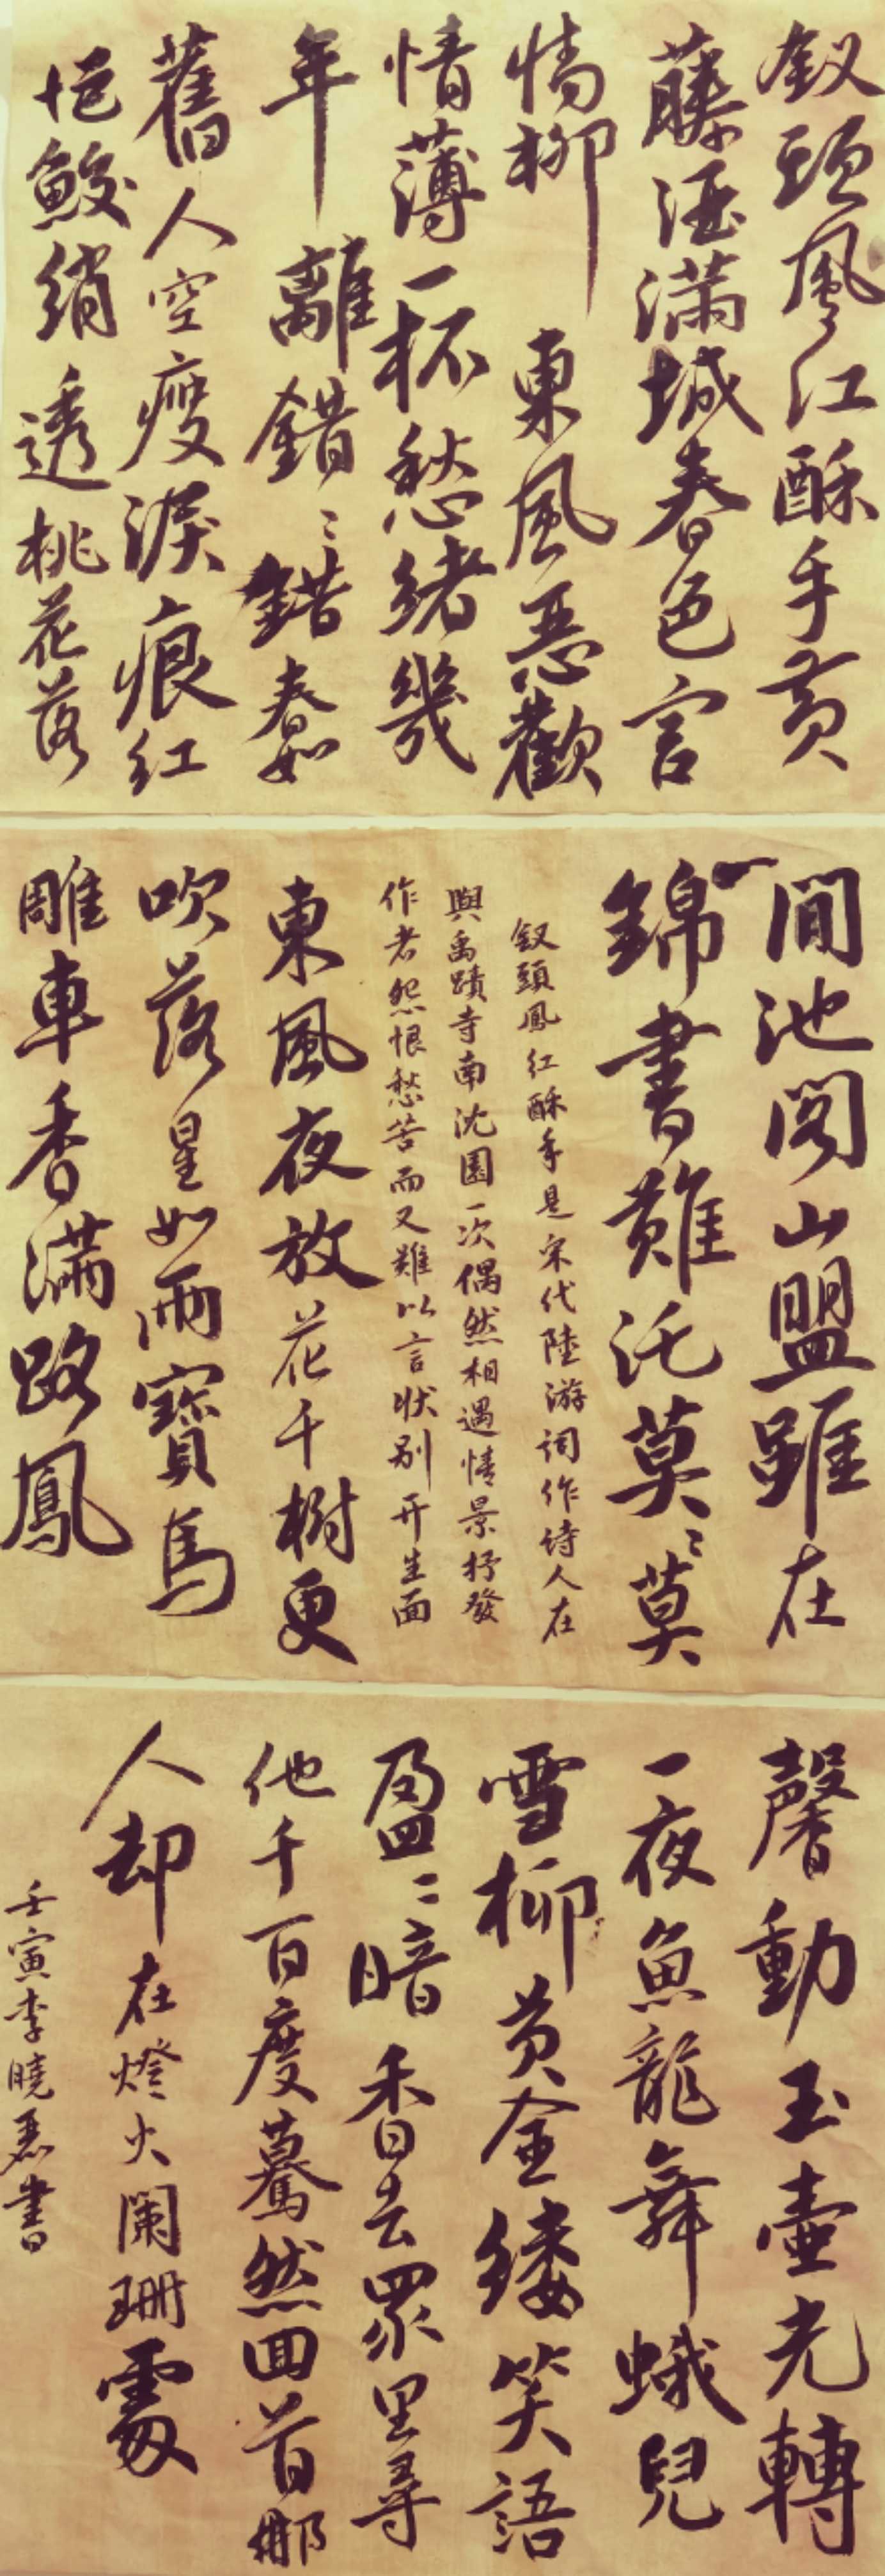 釵頭鳳江酥手黄
藤酒滿城春色宫
墻柳東風惡歡
情薄一杯愁緒幾
年離錯〻錯春如
舊人空瘦淚痕紅
悒鮫綃透桃花落
閒池閣山盟雖在
錦書難託莫〻莫
釵頭鳳紅酥手是宋代陸游詞作诗人在
與禹蹟寺南沈園一次偶然相遇情景抒發
作者怨恨愁苦而又難以言状别开生面
東風夜放花千樹更
吹落星如雨寶馬
雕車香滿路鳳
聲動玉壺光轉
一夜魚龍舞蛾兒
雪柳黄金縷笑語
盈〻暗香去眾里尋
他千百度驀然回首那
人却在燈火闌珊處
壬寅李曉君書